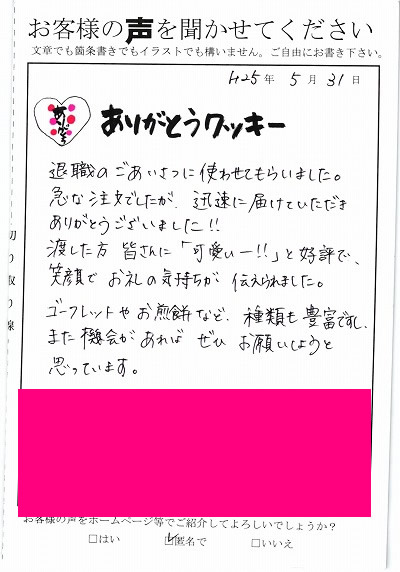 お客様の声を聞かせてください
文章でも箇条書きでもイラストでも構いません。ご自由にお書き下さい。
H25年 5月 31日
ありがとう
ありがとうクッキー
退職のごあいさつに使わせてもらいました。
急な注文でしたが、迅速に届けていただき
ありがとうございました!!
渡した方 皆さんに「可愛いー!!」と好評で、
笑顔で お礼の気持ちが 伝えられました。
ゴーフレットや お煎餅など、種類も 豊富ですし、
また 機会が あれば ぜひ お願いしようと
思っています。
切り取り線
お客様の声をホームページ等でご紹介してよろしいでしょうか?
□はい ☑匿名で □いいえ